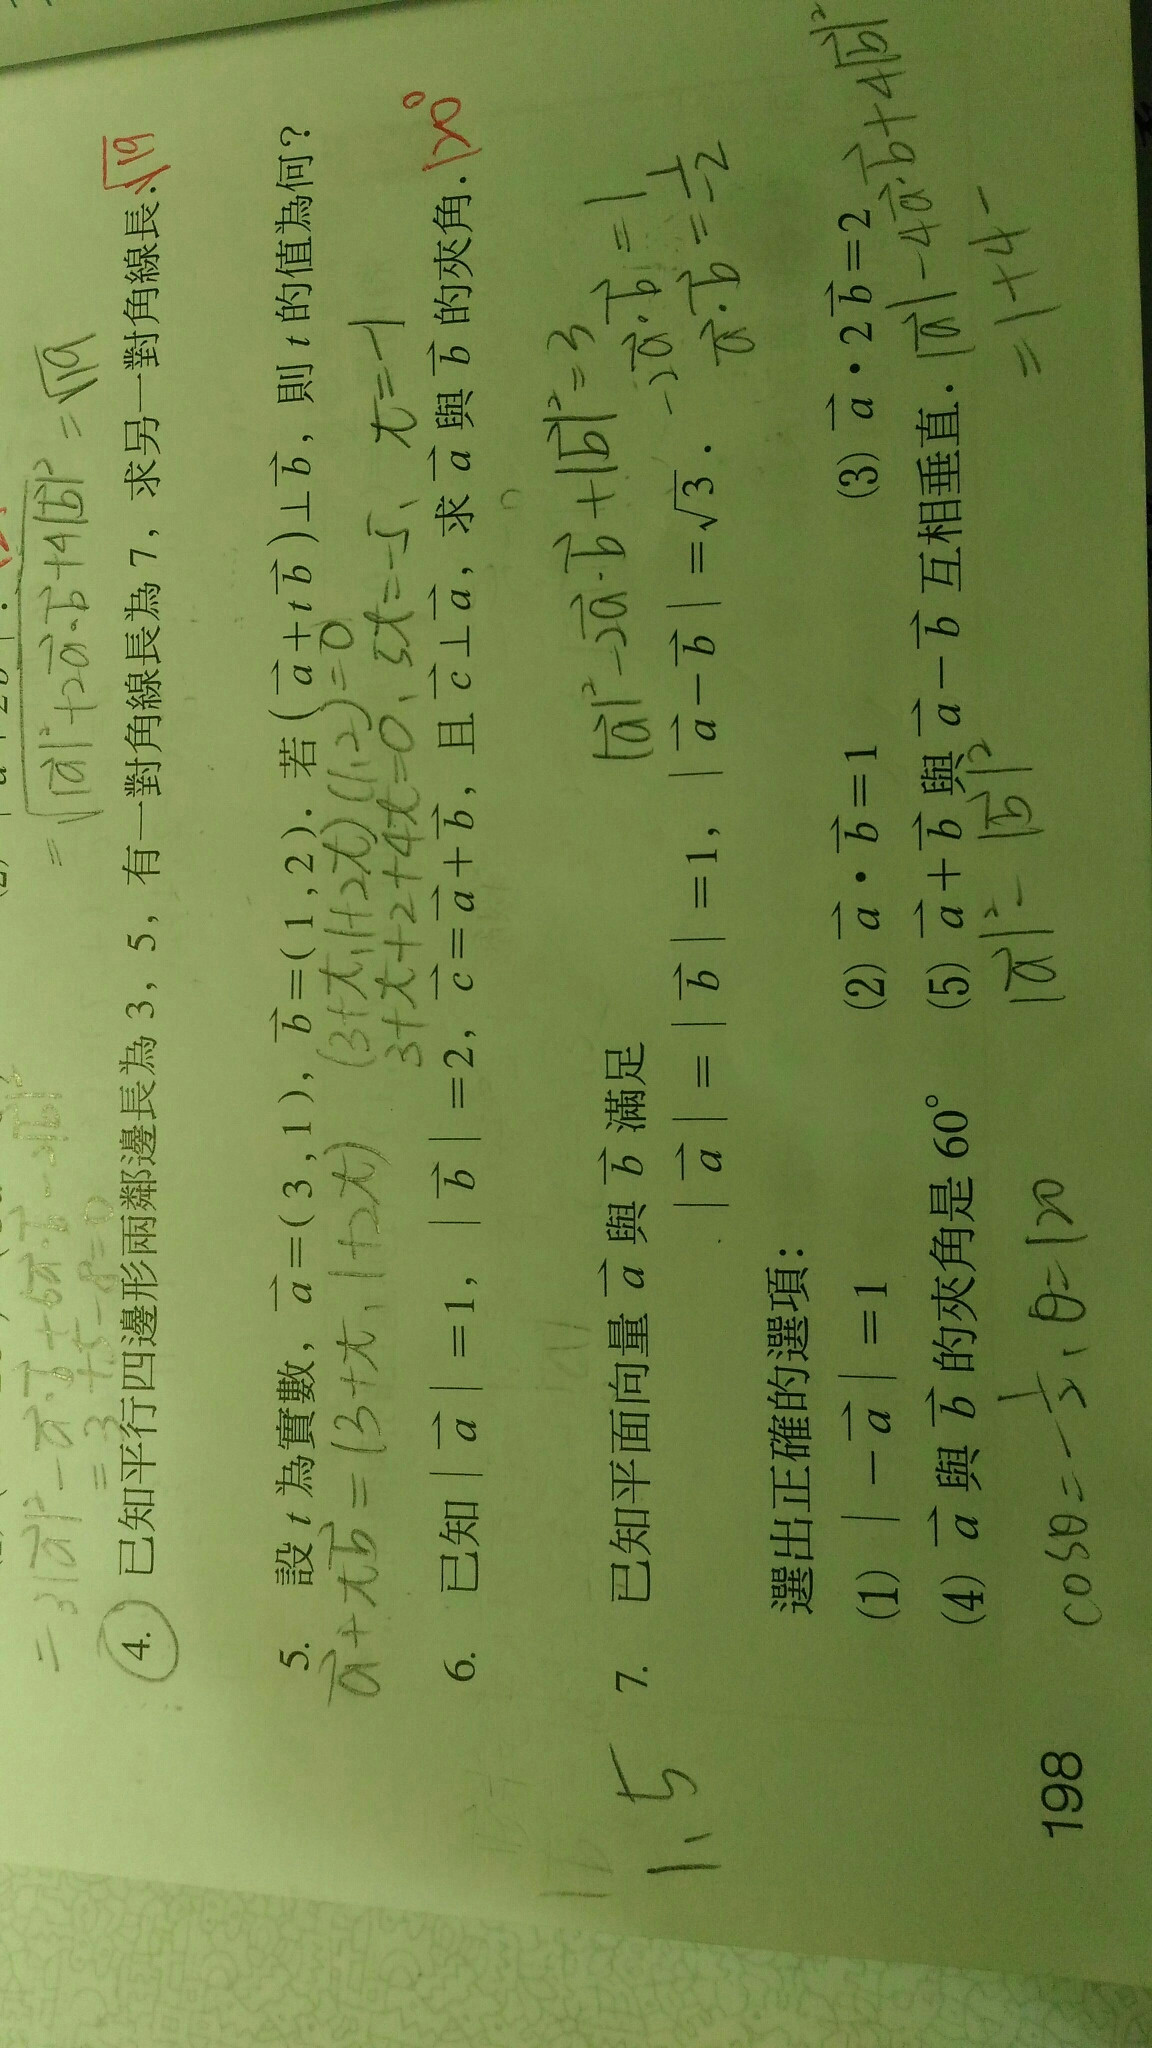 = √|a⃗|²+2a⃗·b⃗+4|b⃗|² = √19
= 3|a⃗|²-a⃗·b⃗+6a⃗·b⃗-2|b⃗|²
= 3+5-8=0
4. 已知平行四邊形兩鄰邊長為 3，5，有一對角線長為 7，求另一對角線長． √19
5. 設 t 為實數，a⃗=(3,1)，b⃗=(1,2)．若(a⃗+tb⃗)⊥b⃗，則 t 的值為何？
a⃗+tb⃗=(3+t, 1+2t) (3+t, 1+2t)(1,2)=0
3+t+2+4t=0、5t=-5、 t=-1
6. 已知 |a⃗|=1，|b⃗|=2，c⃗=a⃗+b⃗，且 c⃗⊥a⃗，求 a⃗ 與 b⃗ 的夾角． 120°
|a⃗|²-2a⃗·b⃗+|b⃗|²=3
7. 已知平面向量 a⃗ 與 b⃗ 滿足
-2a⃗·b⃗=1
1、5
|a⃗|=|b⃗|=1，|a⃗-b⃗|=√3．
a⃗·b⃗=-1/2
選出正確的選項：
(1) |-a⃗|=1 (2) a⃗·b⃗=1 (3) a⃗·2b⃗=2
(4) a⃗ 與 b⃗ 的夾角是 60° (5) a⃗+b⃗ 與 a⃗-b⃗ 互相垂直． |a⃗|-4a⃗·b⃗+4|b⃗|²
|a⃗|²-|b⃗|² =1+4-
cosθ=-1/2、θ=120
198